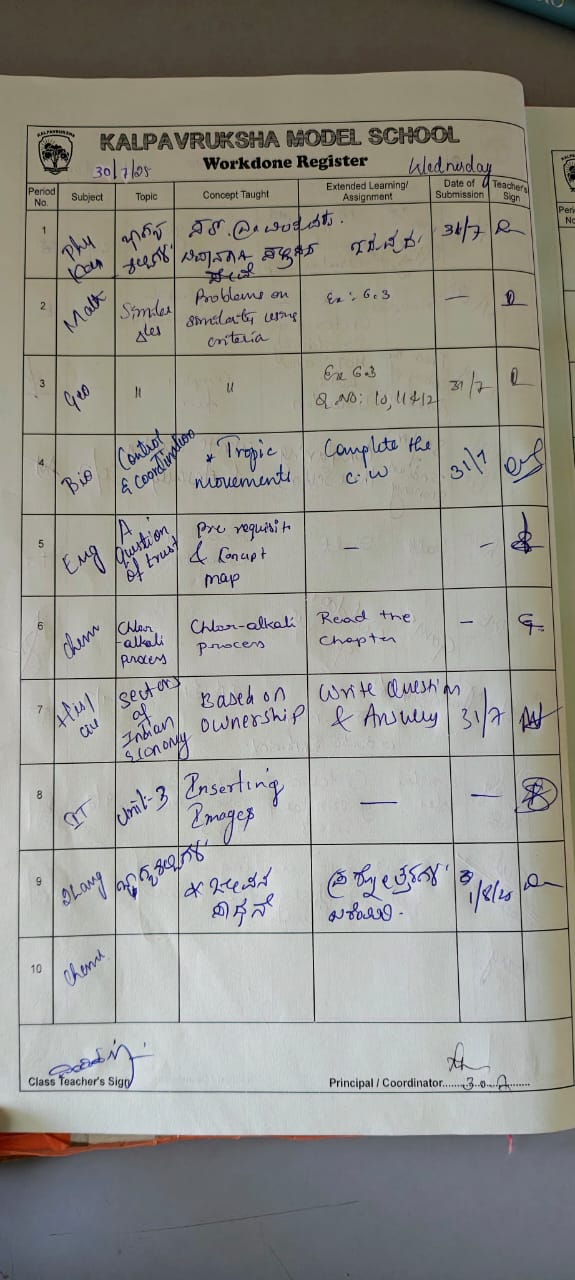 KALPAVRUKSHA
KALPAVRUKSHA MODEL SCHOOL
30/7/25 Workdone Register Wednesday
Period No. Subject Topic Concept Taught Extended Learning/ Assignment Date of Submission Teacher's Sign
1 Phy Kan 31/7
2 Math Similar Problems on similarity using criteria Ex: 6.3 —
3 Geo " " Ex 6.3 Q.NO: 10, 11 & 12 31/7
4 Bio Control & coordination * Tropic movements Complete the C.W 31/7
5 Eng A question of trust Pre requisit & Concept map — -
6 Chem Chlor-alkali process Chlor-alkali process Read the Chapter -
7 His/civ Sectors of Indian Economy Based on ownership Write Question & Answers 31/7
8 IT Unit-3 Inserting Images — —
9 2Lang 1/8/25
10 Chem
Class Teacher's Sign Principal / Coordinator